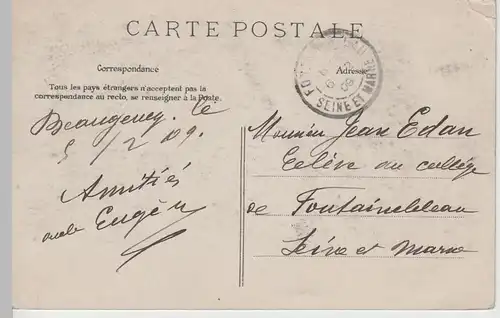 CARTE POSTALE
Correspondance
Adresse
Tous les pays étrangers n'acceptent pas la
correspondance au recto, se renseigner à la Poste.
SEINE ET MARNE
Beaugency, le
5/2 09.
Amitiés
oncle Eugène
Monsieur Jean Edan
Eelève au collège
de Fontainebleau
Seine et Marne